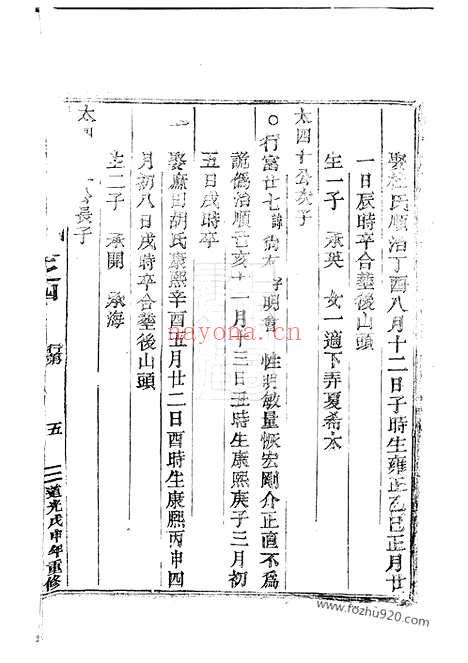 娶杜氏順治丁酉八月十二日子時生雍正乙巳正月廿
一日辰時卒合塟後山頭
生一子 承英 女一適下弄夏希本
太四十公次子
行富廿七諱 明 性明敏量恢宏剛介正直不爲
詭僞治順己亥十一月 三日丑時生康熙庚子三月初
五日戌時卒
娶麻田胡氏康熙辛酉五月廿二日酉時生康熙丙申四
月初八日戌時卒合塟後山頭
生二子 承開 承海
太 長子
行第 五 道光戊申年重修
nayona.cn
www.fozhu920.com